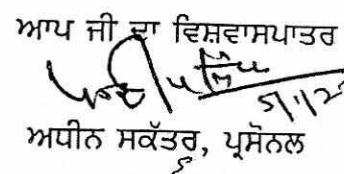 ਆਪ ਜੀ ਦਾ ਵਿਸ਼ਵਾਸਪਾਤਰ
ਅਧੀਨ ਸਕੱਤਰ, ਪ੍ਰਸੋਨਲ